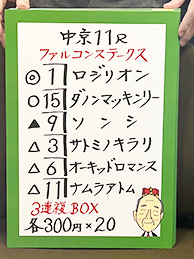 中京11R
ファルコンステークス
◎1ロジリオン
○15ダノンマッキンリー
▲9ソンシ
△3サトミノキラリ
△6オーキッドロマンス
△11ナムラアトム
3連複BOX
各300円×20